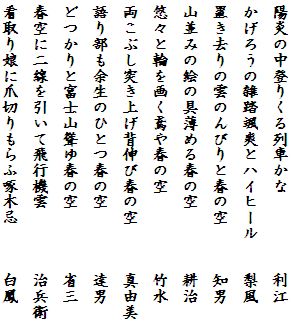 陽炎の中登りくる列車かな　利江
かげろうの雑踏颯爽とハイヒール　梨風
置き去りの雲のんびりと春の空　知男
山並みの絵の具薄める春の空　耕治
悠々と輪を画く鳶や春の空　竹水
両こぶし突き上げ背伸び春の空　真由美
語り部も余生のひとつ春の空　達男
どつかりと富士山聳ゆ春の空　省三
春空に二線を引いて飛行機雲　治兵衛
看取り娘に爪切りもらふ啄木忌　白鳳